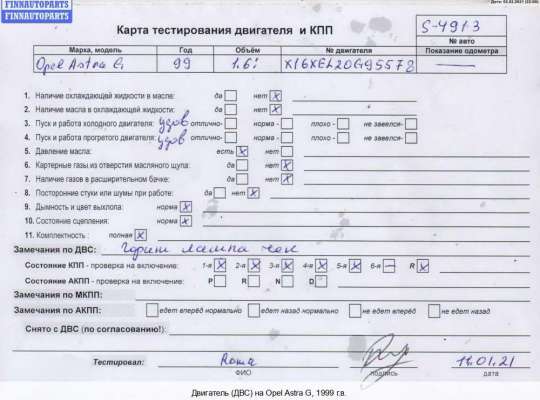 FINNAUTOPARTS
FINNAUTOPARTS
Карта тестирования двигателя и КПП
S-4913
№ авто
Марка, модель Год Объём № двигателя Показание одометра
Opel Astra G 99 1.6i X16XEL20G95578 —
1. Наличие охлаждающей жидкости в масле: да нет X
2. Наличие масла в охлаждающей жидкости: да нет X
3. Пуск и работа холодного двигателя: удов отлично- норма - плохо - не завелся-
4. Пуск и работа прогретого двигателя: удов отлично- норма - плохо - не завелся-
5. Давление масла: есть X нет
6. Картерные газы из отверстия масляного щупа: да нет X
7. Наличие газов в расширительном бачке: да нет X
8. Посторонние стуки или шумы при работе: да нет X
9. Дымность и цвет выхлопа: норма X
10. Состояние сцепления: норма X
11. Комплектность : полная X
Замечания по ДВС: Горит лампа чек
Состояние КПП - проверка на включение: 1-я X 2-я X 3-я X 4-я X 5-я X 6-я — R X
Состояние АКПП - проверка на включение: P R N D
Замечания по МКПП:
Замечания по АКПП: едет вперёд нормально едет назад нормально не едет вперёд не едет назад
Снято с ДВС (по согласованию!):
Тестировал: Рома 14.01.21
ФИО подпись дата
Двигатель (ДВС) на Opel Astra G, 1999 г.в.